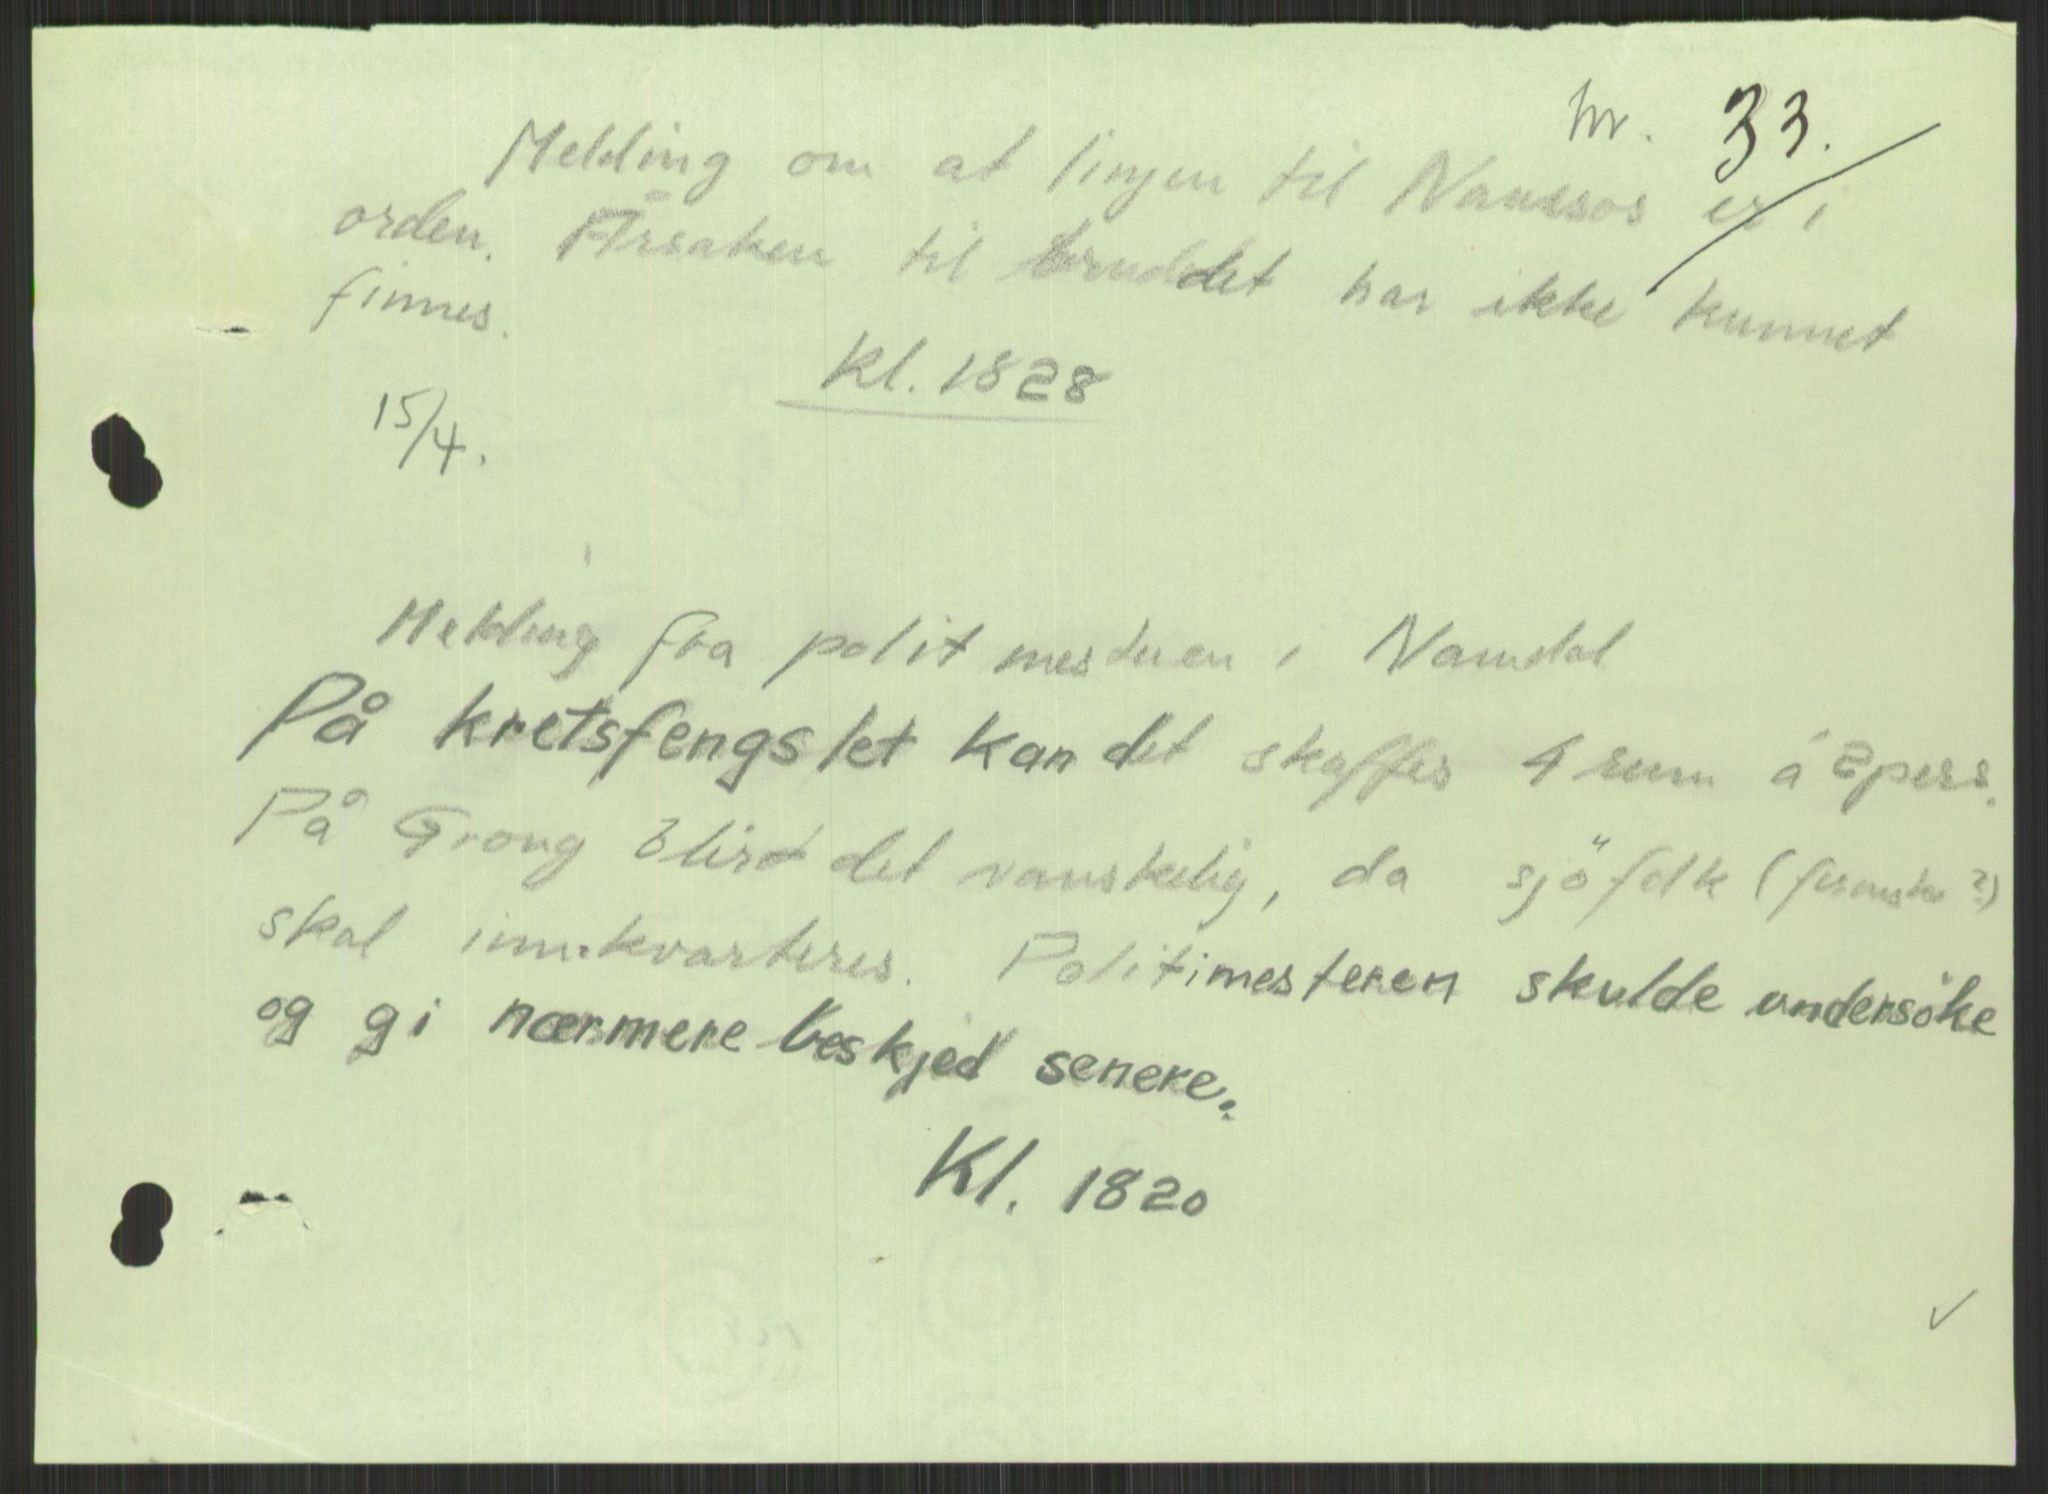 nr. 33.
Melding om at linjen til Namsos er i
orden. Årsaken til bruddet har ikke kunnet
finnes.
Kl. 1828
15/4.
Melding fra politimesteren i Namdal
På kretsfengslet kan det skaffes 4 rum á 2 pers.
På Grong blir det vanskelig, da sjöfolk (franske ?)
skal innkvarteres. Politimesteren skulde undersöke
og gi nærmere beskjed senere.
Kl. 1820